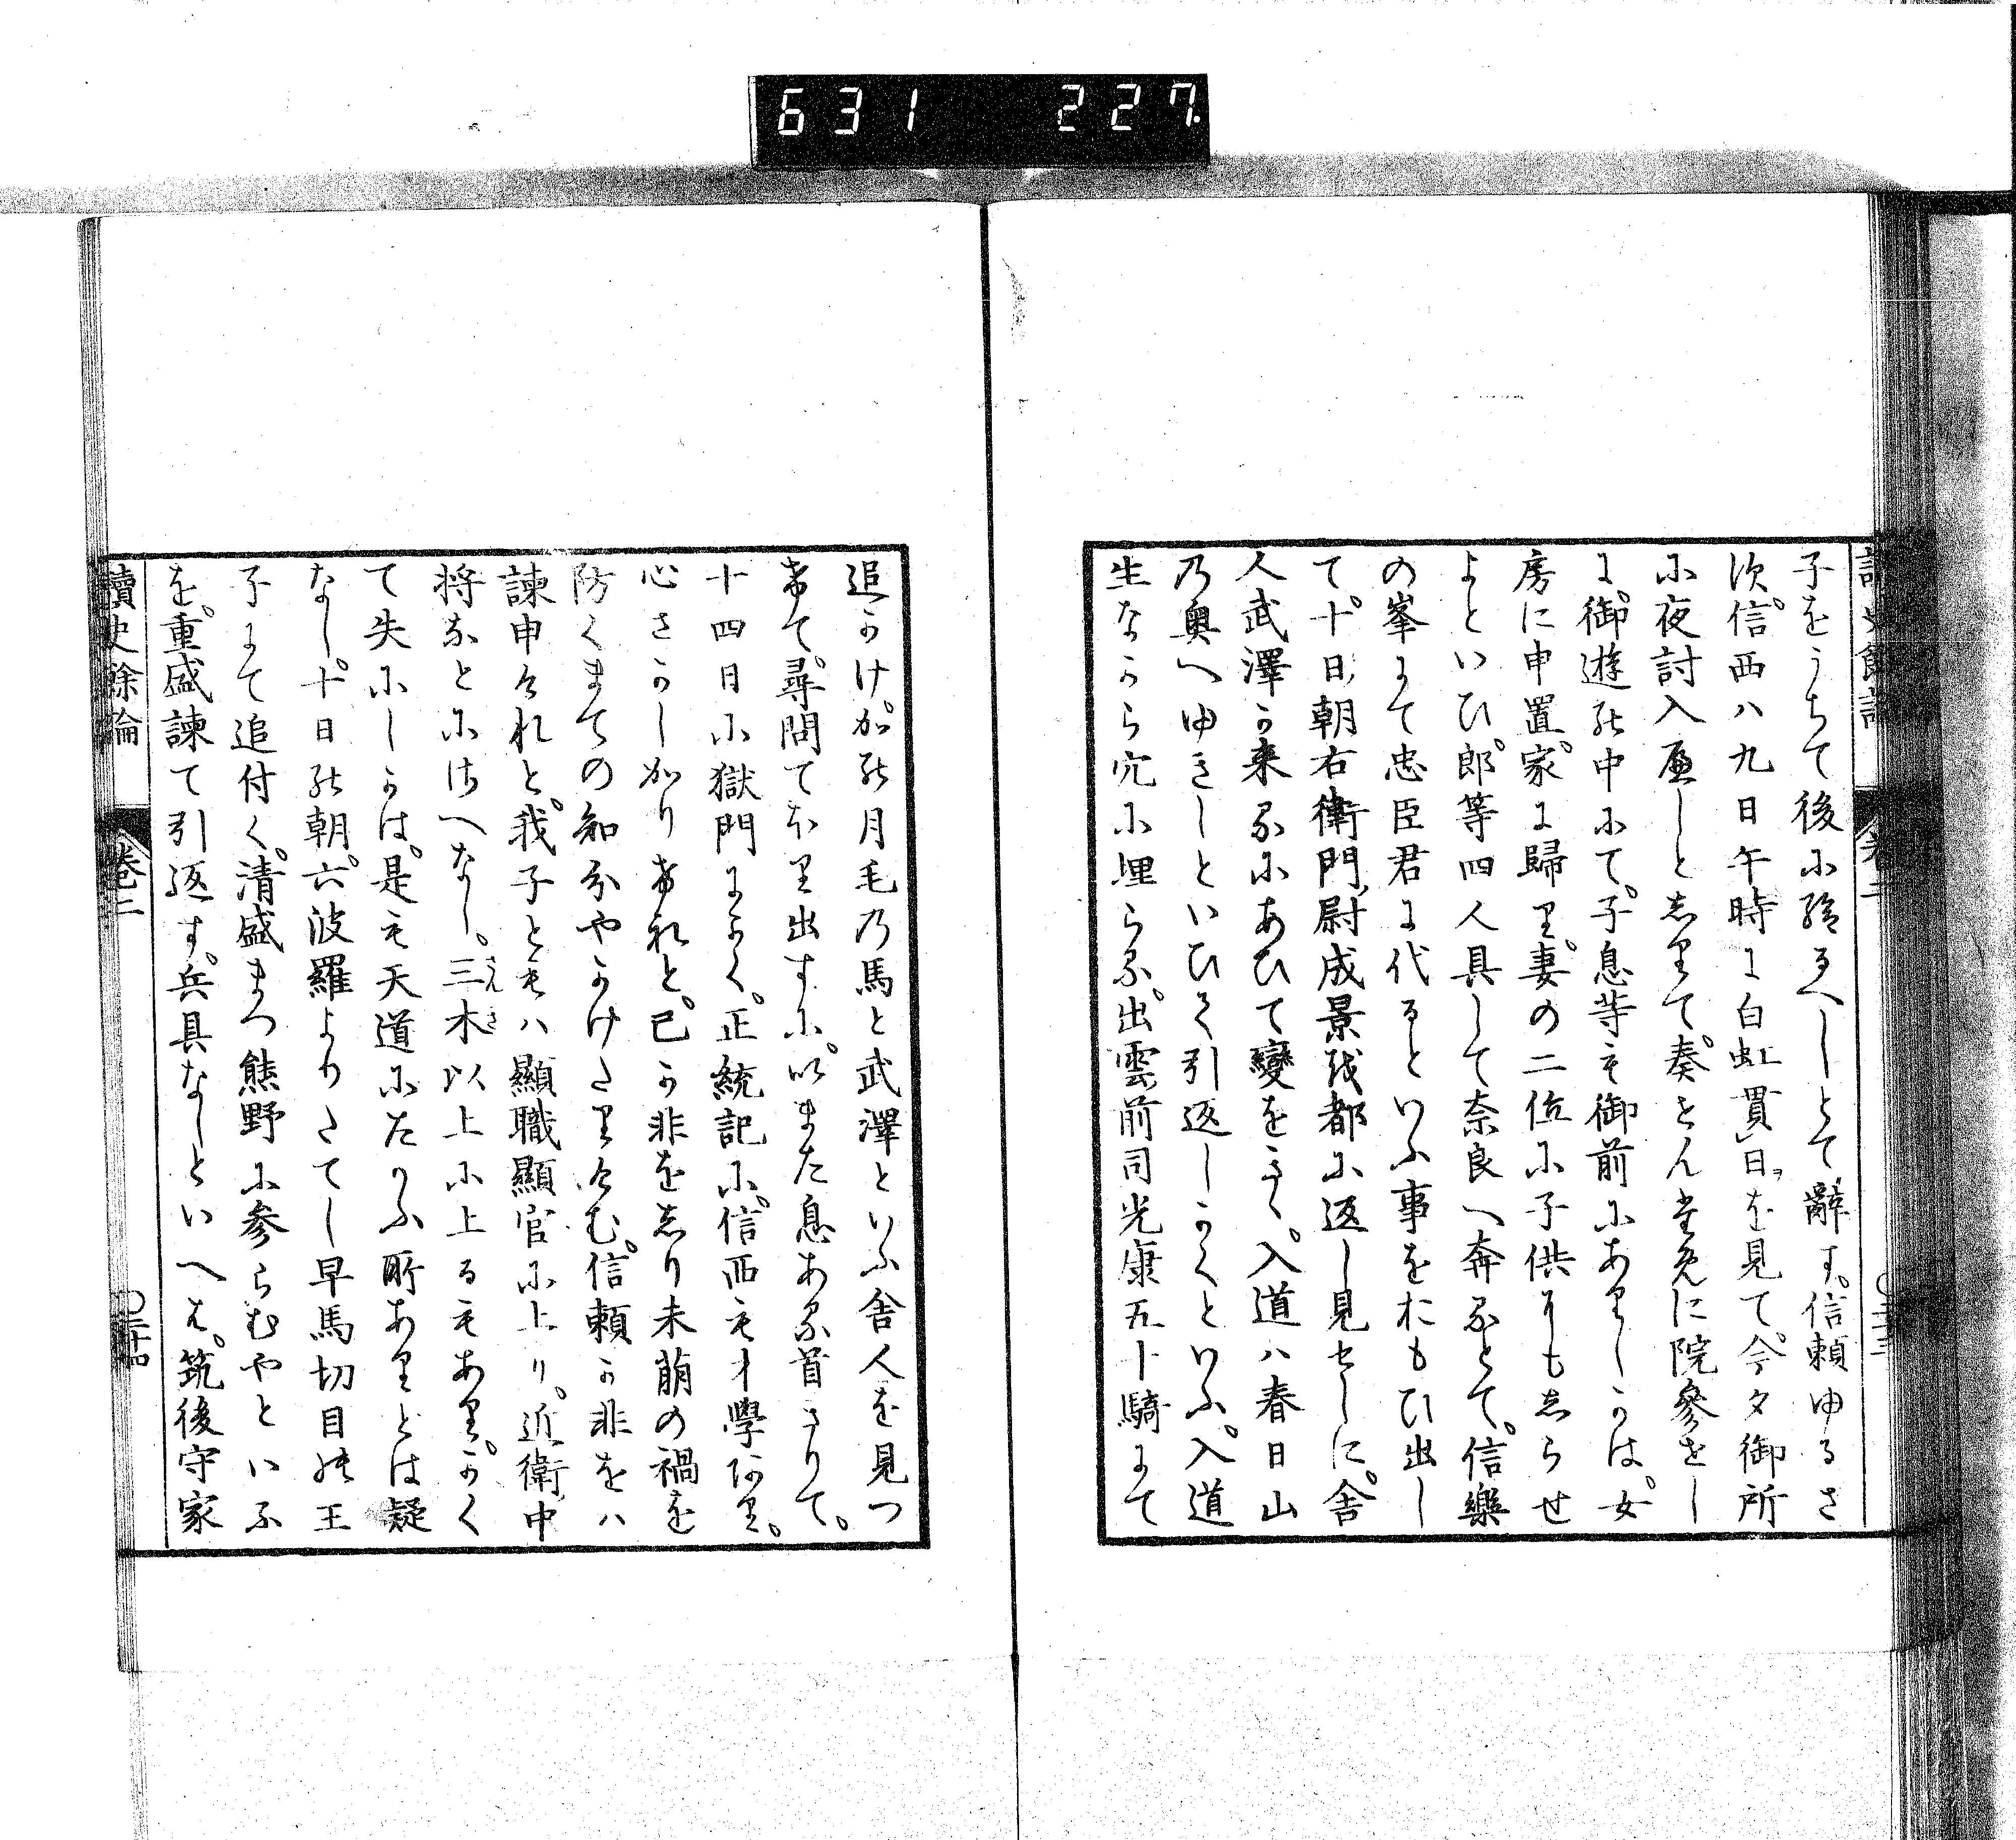 631 227
子をうちて後に給るへしとて辭す。信頼ゆるさ
す。信西ハ九日午時に白虹貫日を見て。今夕御所
に夜討入へしとしりて。奏せんために院參せし
に。御遊の中にて。子息等も御前にありしかは。女
房に申置。家に歸り。妻の二位に子供にもしらせ
よといひ。郎等四人具して奈良へ奔るとて。信樂
の峯にて忠臣君に代るといふ事をおもひ出し
て。十日朝右衛門尉成景を都に返し見せしに。舎
人武澤か来るにあひて變をきく。入道ハ春日山
乃奥へゆきしといひて引返しかくといふ。入道
生なから穴に埋らる。出雲前司光康五十騎にて
追かけ。かの月毛乃馬と武澤といふ舎人を見つ
けて。尋問てほり出すに。いまた息ある首きりて。
十四日に獄門にかく。正統記に。信西も才學あり。
心さかしかりけれと。己か非をしり未萌の禍を
防くまての知分やかけたりけむ。信頼か非をハ
諫申けれと。我子ともハ顯職顯官に上り。近衛中
將なとにさへなし。三木以上に上るもあり。かく
て失にしかは。是も天道にたかふ所ありとは疑
なし。十日の朝。六波羅よりたてし早馬切目の王
子にて追付く。清盛まつ熊野に参らむやといふ
を。重盛諫て引返す。兵具なしといへは。筑後守家
讀史餘論 巻二 〇三十四